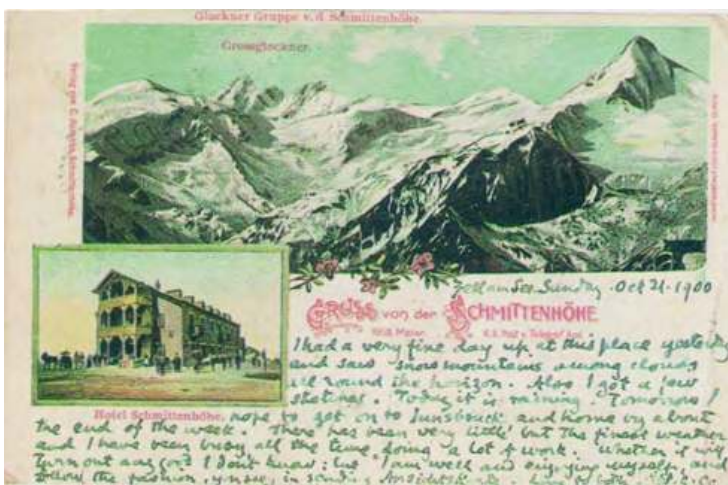 Glockner Gruppe v. d. Schmittenhöhe.
Grossglockner.
Zell am See. Sunday. Oct 21. 1900
GRUSS von der SCHMITTENHÖHE
1968 Meter.
K. K. Post u. Telegraf Amt.
I had a very fine day up at this place yesterday
and saw snow mountains among clouds
all round the horizon. Also I got a few
sketches. Today it is raining. Tomorrow I
Hotel Schmittenhöhe.
hope to get on to Innsbruck, and home by about
the end of the week. There has been very little but the finest weather
and I have been busy all the time doing a lot of work. Whether it will
turn out any good I don't know; but I am well and enjoying myself, and
follow the fashion, you see, in sending Ansichts